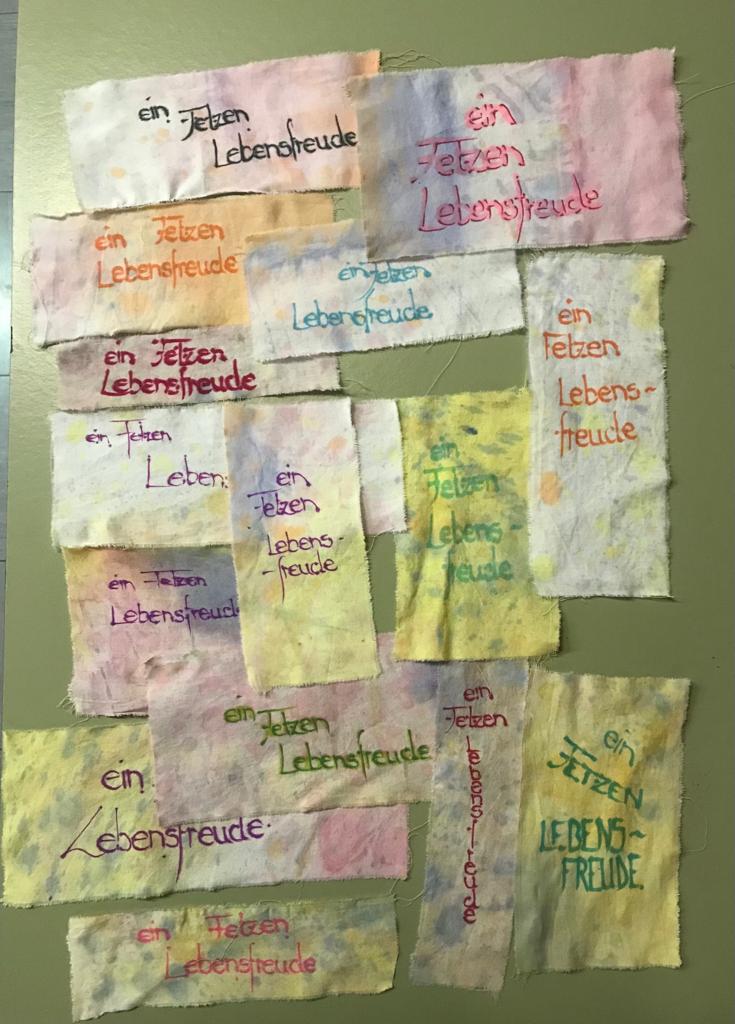 ein Fetzen
Lebensfreude
ein
Fetzen
Lebensfreude
ein Fetzen
Lebensfreude
ein Fetzen
Lebensfreude
ein
Fetzen
Lebens-
freude
ein Fetzen
Lebensfreude
ein Fetzen
Leben
ein
Fetzen
Lebens-
-freude
ein
Fetzen
Lebens-
freude
ein Fetzen
Lebensfreud
ein
Fetzen
Lebensfreude
ein
Fetzen
Lebensfreude
ein
FETZEN
LEBENS-
FREUDE.
ein
Lebensfreude.
ein Fetzen
Lebensfreude